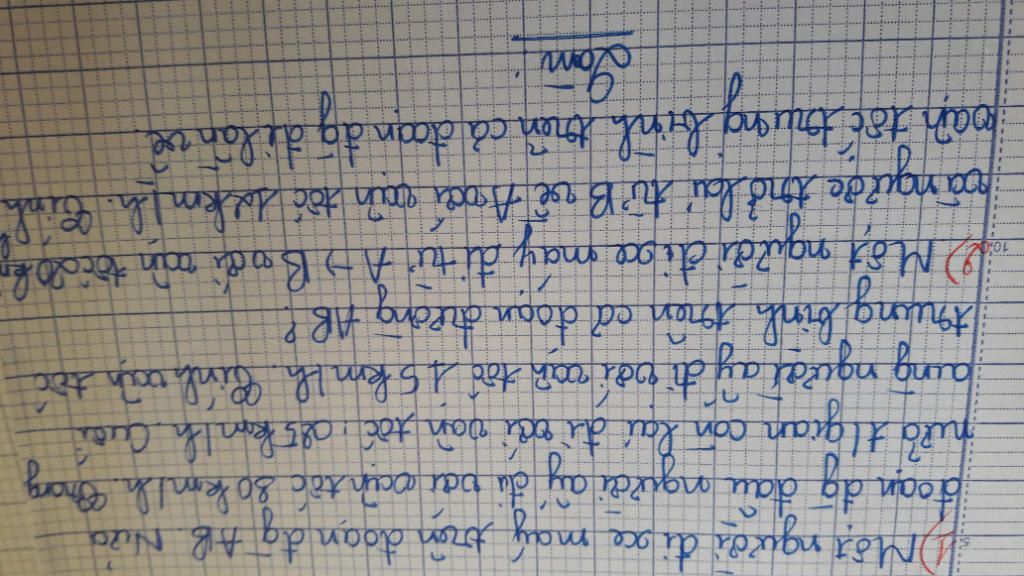 1) Một người đi xe máy trên đoạn đg AB Nửa
đoạn đg đầu người ấy đi với vận tốc 30km/h. Trong
nửa t/gian còn lại đi với vận tốc: 25km/h. Cuối
cùng người ấy đi với vận tốc 15km/h. Tính vận tốc
trung bình trên cả đoạn đường AB?
2) Một người đi xe máy đi từ A → B với vận tốc 20k
và ngược trở lại từ B về A với vận tốc 10km/h. Tính
vận tốc trung bình trên cả đoạn đg đi lẫn về.
Làm
5
10